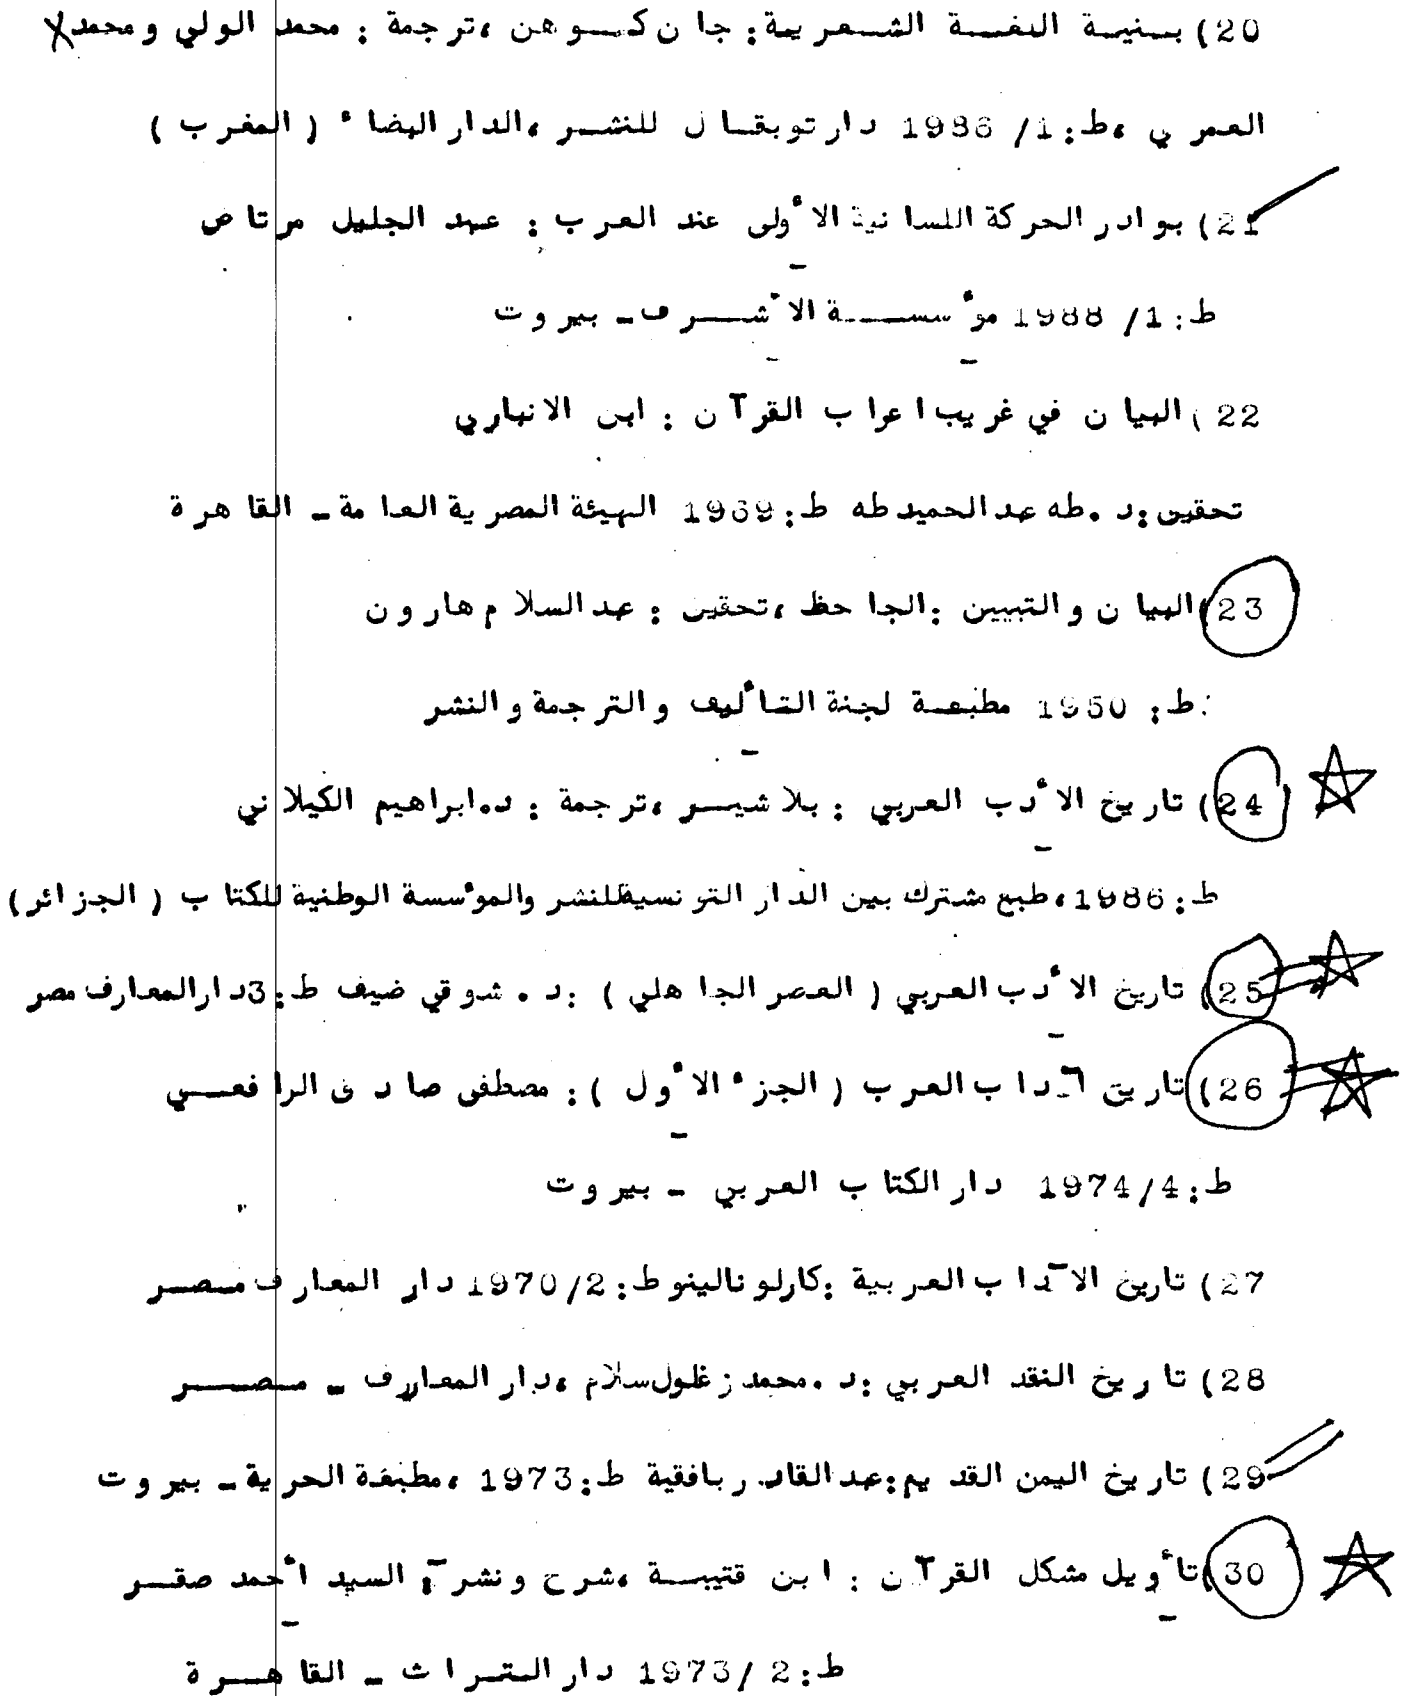 20) بنية اللغة الشعرية: جان كوهن ،ترجمة : محمد الولي ومحمد
العمري ،ط:1/ 1986 دار توبقال للنشر ،الدار البضاء ( المغرب )
21) بوادر الحركة اللسانية الأولى عند العرب : عبد الجليل مرتاض
ط:1/ 1988 مؤسسة الأشرف ـ بيروت
22) البيان في غريب اعراب القرآن : ابن الانباري
تحقيق:د .طه عبد الحميد طه ط:1969 الهيئة المصرية العامة ـ القاهرة
23) البيان والتبيين :الجاحظ ،تحقيق : عبد السلام هارون
ط: 1950 مطبعة لجنة التأليف والترجمة والنشر
24) تاريخ الأدب العربي : بلاشير ،ترجمة : د.ابراهيم الكيلاني
ط:1986، طبع مشترك بين الدار التونسية للنشر والمؤسسة الوطنية للكتاب ( الجزائر)
25) تاريخ الأدب العربي ( العصر الجاهلي ) :د . شوقي ضيف ط:3 دار المعارف مصر
26) تاريخ آداب العرب ( الجزء الأول ): مصطفى صادق الرافعي
ط:4/1974 دار الكتاب العربي ـ بيروت
27) تاريخ الآداب العربية :كارلو نالينو ط:2/1970 دار المعارف مصر
28) تاريخ النقد العربي :د .محمد زغلول سلام ،دار المعارف ـ مصر
29) تاريخ اليمن القديم:عبد القادر بافقية ط:1973 ،مطبعة الحرية ـ بيروت
30) تأويل مشكل القرآن : ابن قتيبة ،شرح ونشر : السيد أحمد صقر
ط:2 /1973 دار التراث ـ القاهرة